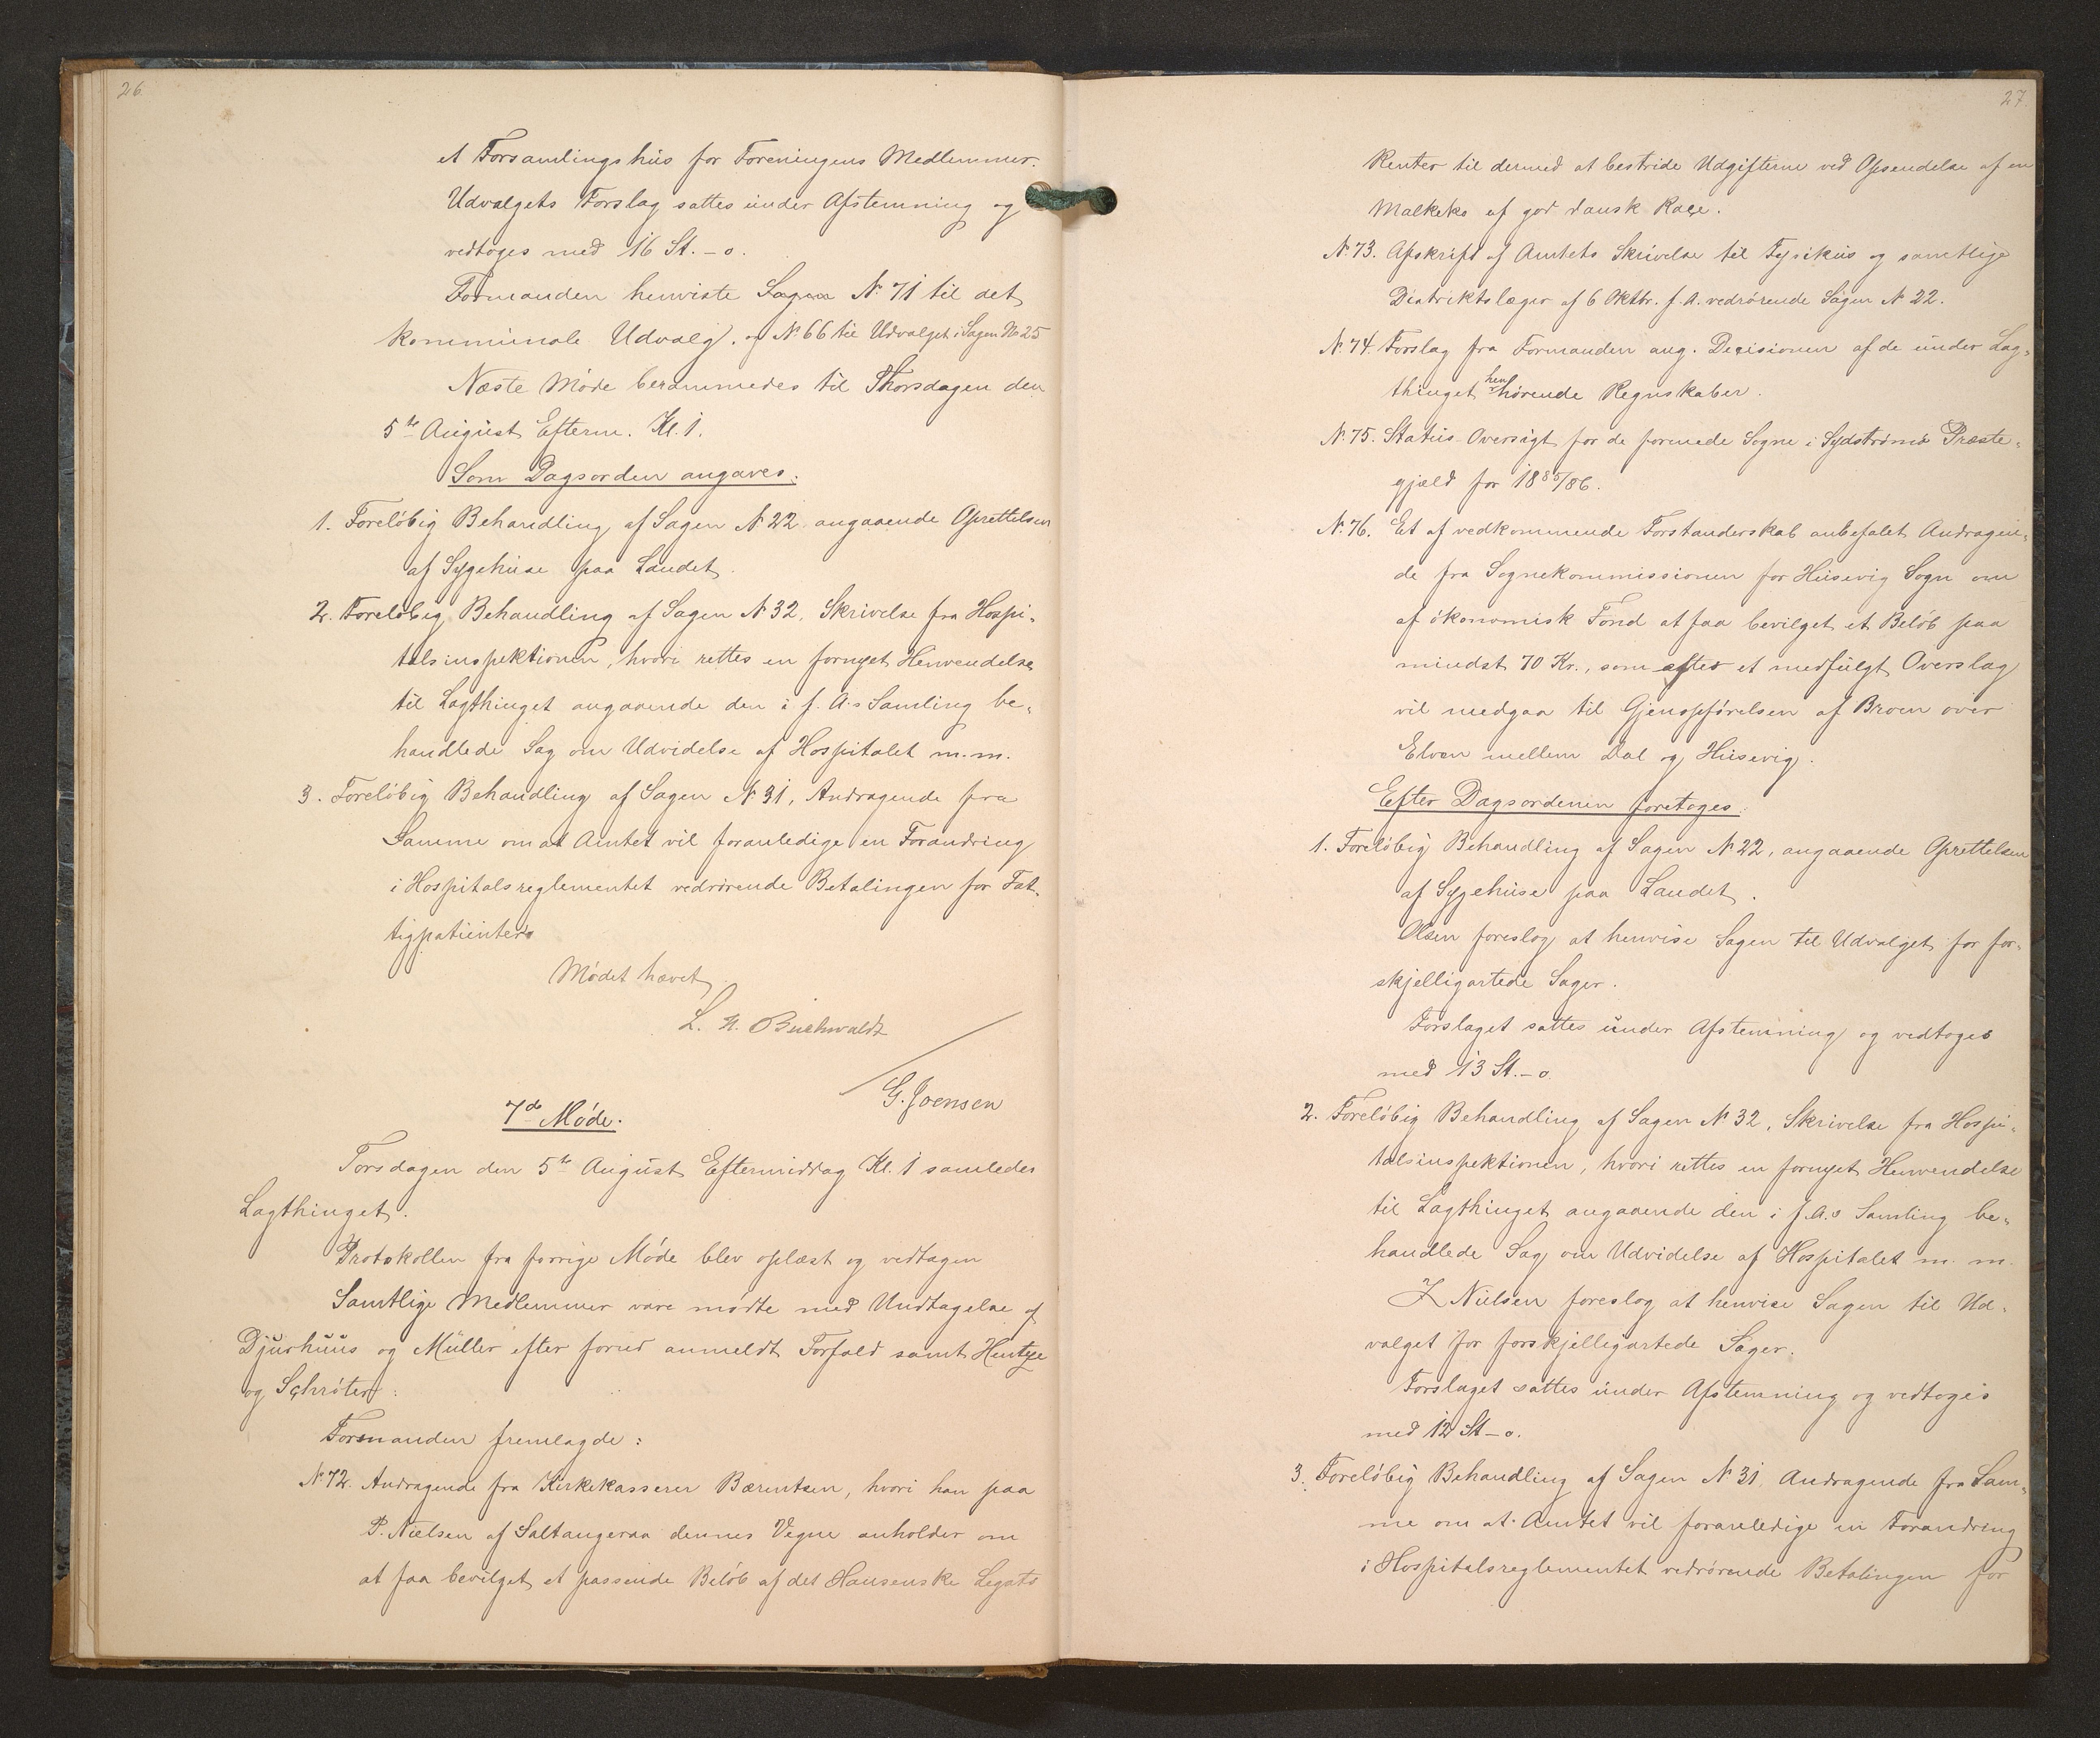 26.
et Forsamlingshus for Foreningens Medlemmer.
Udvalgets Forslag sattes under Afstemning og
vedtoges med 16 St. – o.
Formanden henviste Sagen N. 71 til det
kommunale Udvalg. og N. 66 til Udvalget i Sagen No 25
Næste Møde berammedes til Thorsdagen den
5te August Efterm. Kl. 1.
Som Dagsorden angaves:
1. Foreløbig Behandling af Sagen N. 22 angaaende Oprettelsen
af Sygehuse paa Landet.
2. Foreløbig Behandling af Sagen N. 32, Skrivelse fra Hospi-
talsinspektionen, hvori rettes en fornyet Henvendelse
til Lagthinget angaaende den i f. A.s Samling be-
handlede Sag om Udvidelse af Hospitalet m.m.
3. Foreløbig Behandling af Sagen N. 31, Andragende fra
Samme om at Amtet vil foranledige en Forandring
i Hospitalsreglementet vedrørende Betalingen for Fat-
tigpatienter.
Mødet hævet.
L. H. Buchwaldt
G. Joensen
7de Møde.
Torsdagen den 5te August Eftermiddag Kl. 1 samledes
Lagthinget.
Protokollen fra forrige Møde blev oplæst og vedtagen
Samtlige Medlemmer vare mødte med Undtagelse af
Djurhuus og Müller efter forud anmeldt Forfald samt Hentze
og Schrøter:
Formanden fremlagde:
N. 72. Andragende fra Kirkekasserer Bærentsen, hvori han paa
P. Nielsen af Saltangeraa dennes Vegne anholder om
at faa bevilget et passende Beløb af det Hansenske Legats
27.
Renter til dermed at bestride Udgifterne ved Opsendelse af en
Malkeko af god dansk Raçe.
N. 73. Afskrift af Amtets Skrivelse til Fysikus og samtlige
Distriktslæger af 6 Oktbr. f. A. vedrørende Sagen N. 22.
N. 74. Forslag fra Formanden ang. Decisionen af de under Lag-
thinget henhørende Regnskaber.
N. 75. Status-Oversigt for de formede Sogne i Sydstrømø Præste-
gjæld for 1885/86.
N. 76. Et af vedkommende Forstanderskab anbefalet Andragen-
de fra Sognekommissionen for Husevig Sogn om
af økonomisk Fond at faa bevilget et Beløb paa
mindst 70 Kr., som efter et medfulgt Overslag
vil medgaa til Gjenopførelsen af Broen over
Elven mellem Dal og Husevig.
Efter Dagsordenen foretoges:
1. Foreløbig Behandling af Sagen N. 22, angaaende Oprettelsen
af Sygehuse paa Landet.
Olsen foreslog at henvise Sagen til Udvalget for for-
skjelligartede Sager.
Forslaget sattes under Afstemning og vedtoges
med 13 St. – o.
2. Foreløbig Behandling af Sagen N. 32, Skrivelse fra Hospi-
talsinspektionen, hvori rettes en fornyet Henvendelse
til Lagthinget angaaende den i f. A.s Samling be-
handlede Sag om Udvidelse af Hospitalet m. m.
Z Nielsen foreslog at henvise Sagen til Ud-
valget for forskjelligartede Sager.
Forslaget sattes under Afstemning og vedtoges
med 12 St – o.
3. Foreløbig Behandling af Sagen N. 31, Andragende fra Sam-
me om at Amtet vil foranledige en Forandring
i Hospitalsreglementet vedrørende Betalingen for